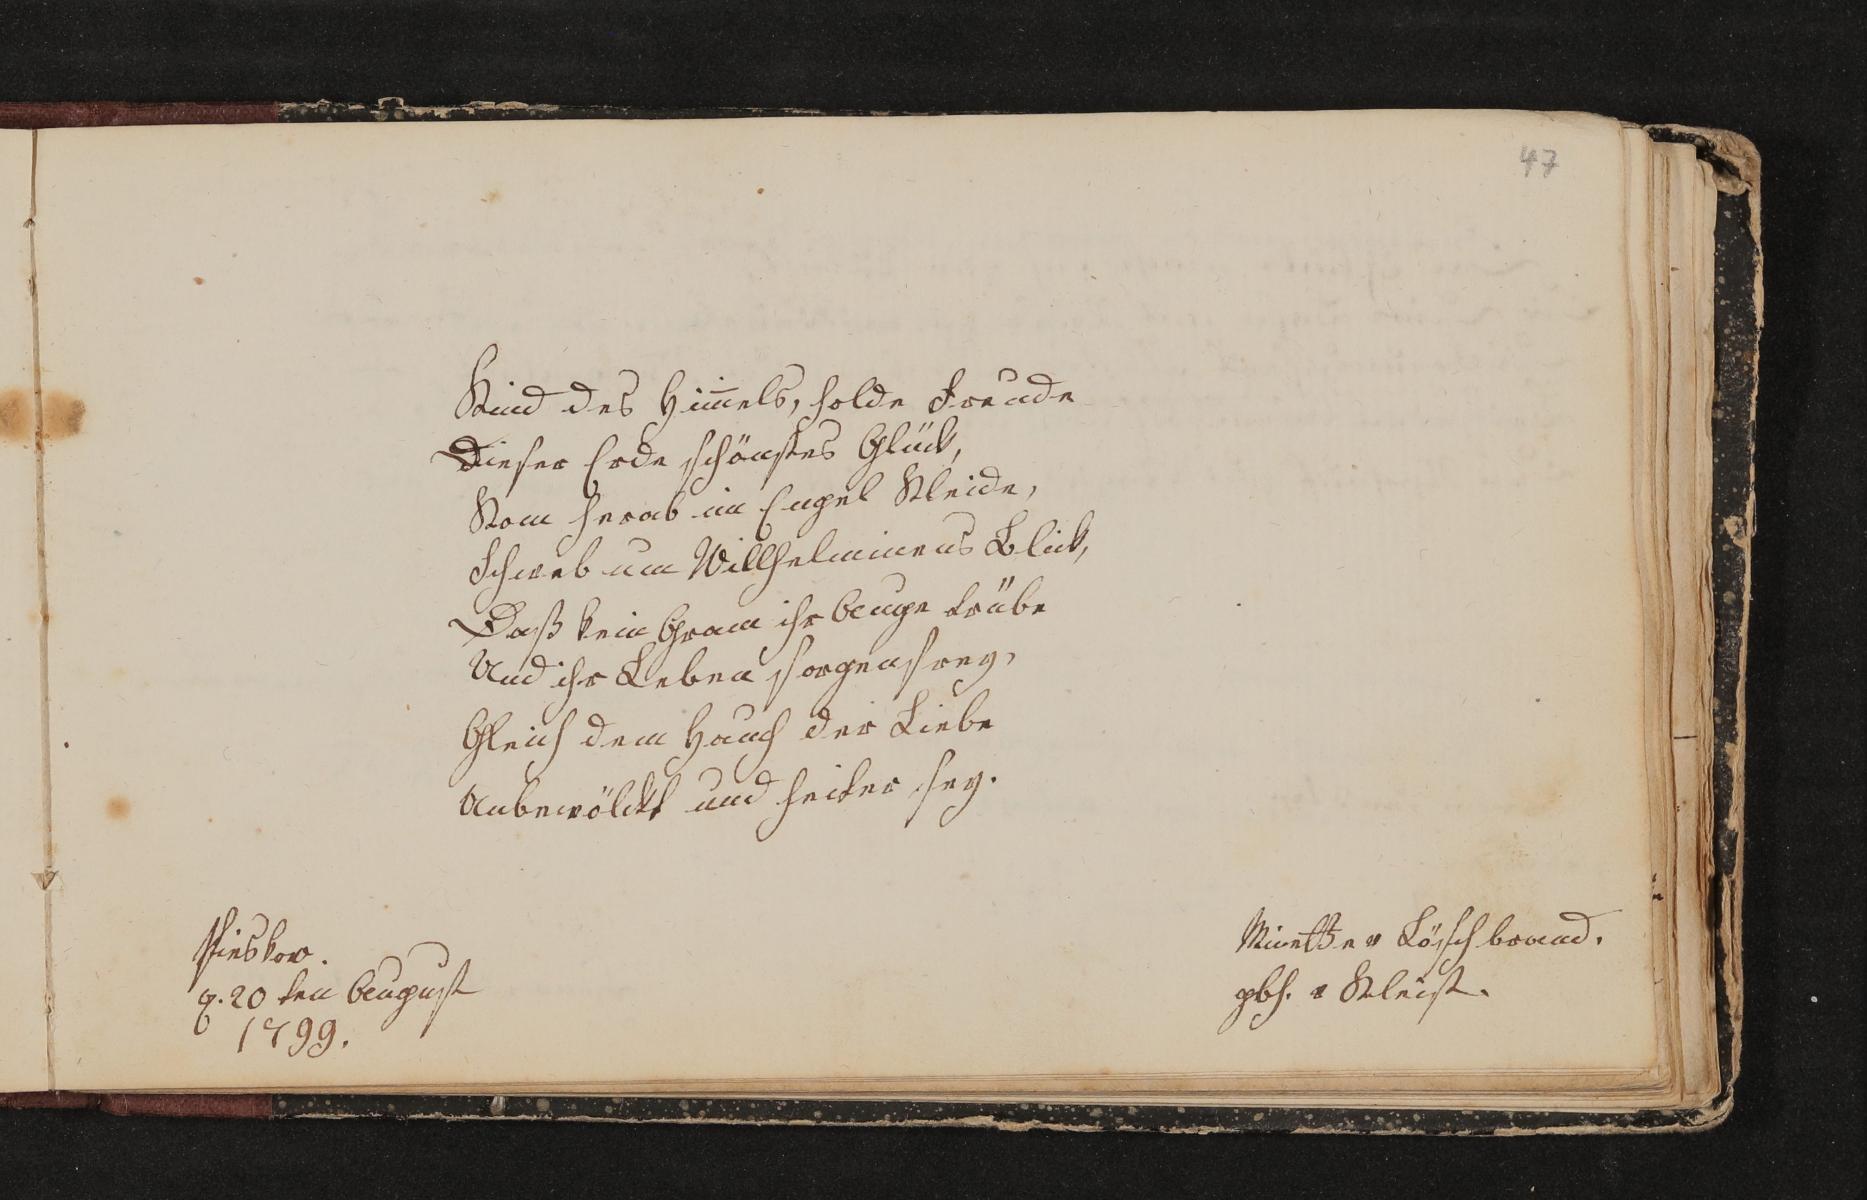 47
Kind des Him̄els, holde Freude
Dieser Erde schönstes Glück,
Kom herab im Engel Kleide,
Schweb um Willhelminens Blick,
Daß kein Gram ihr Auge trübe
Und ihr Leben sorgenfrey,
Gleich dem Hauch der Liebe
Unbewölckt und heiter sey.
Pieskow.
d. 20 ten August
1799.
v Löschbrand.
gbh. v Kleist.